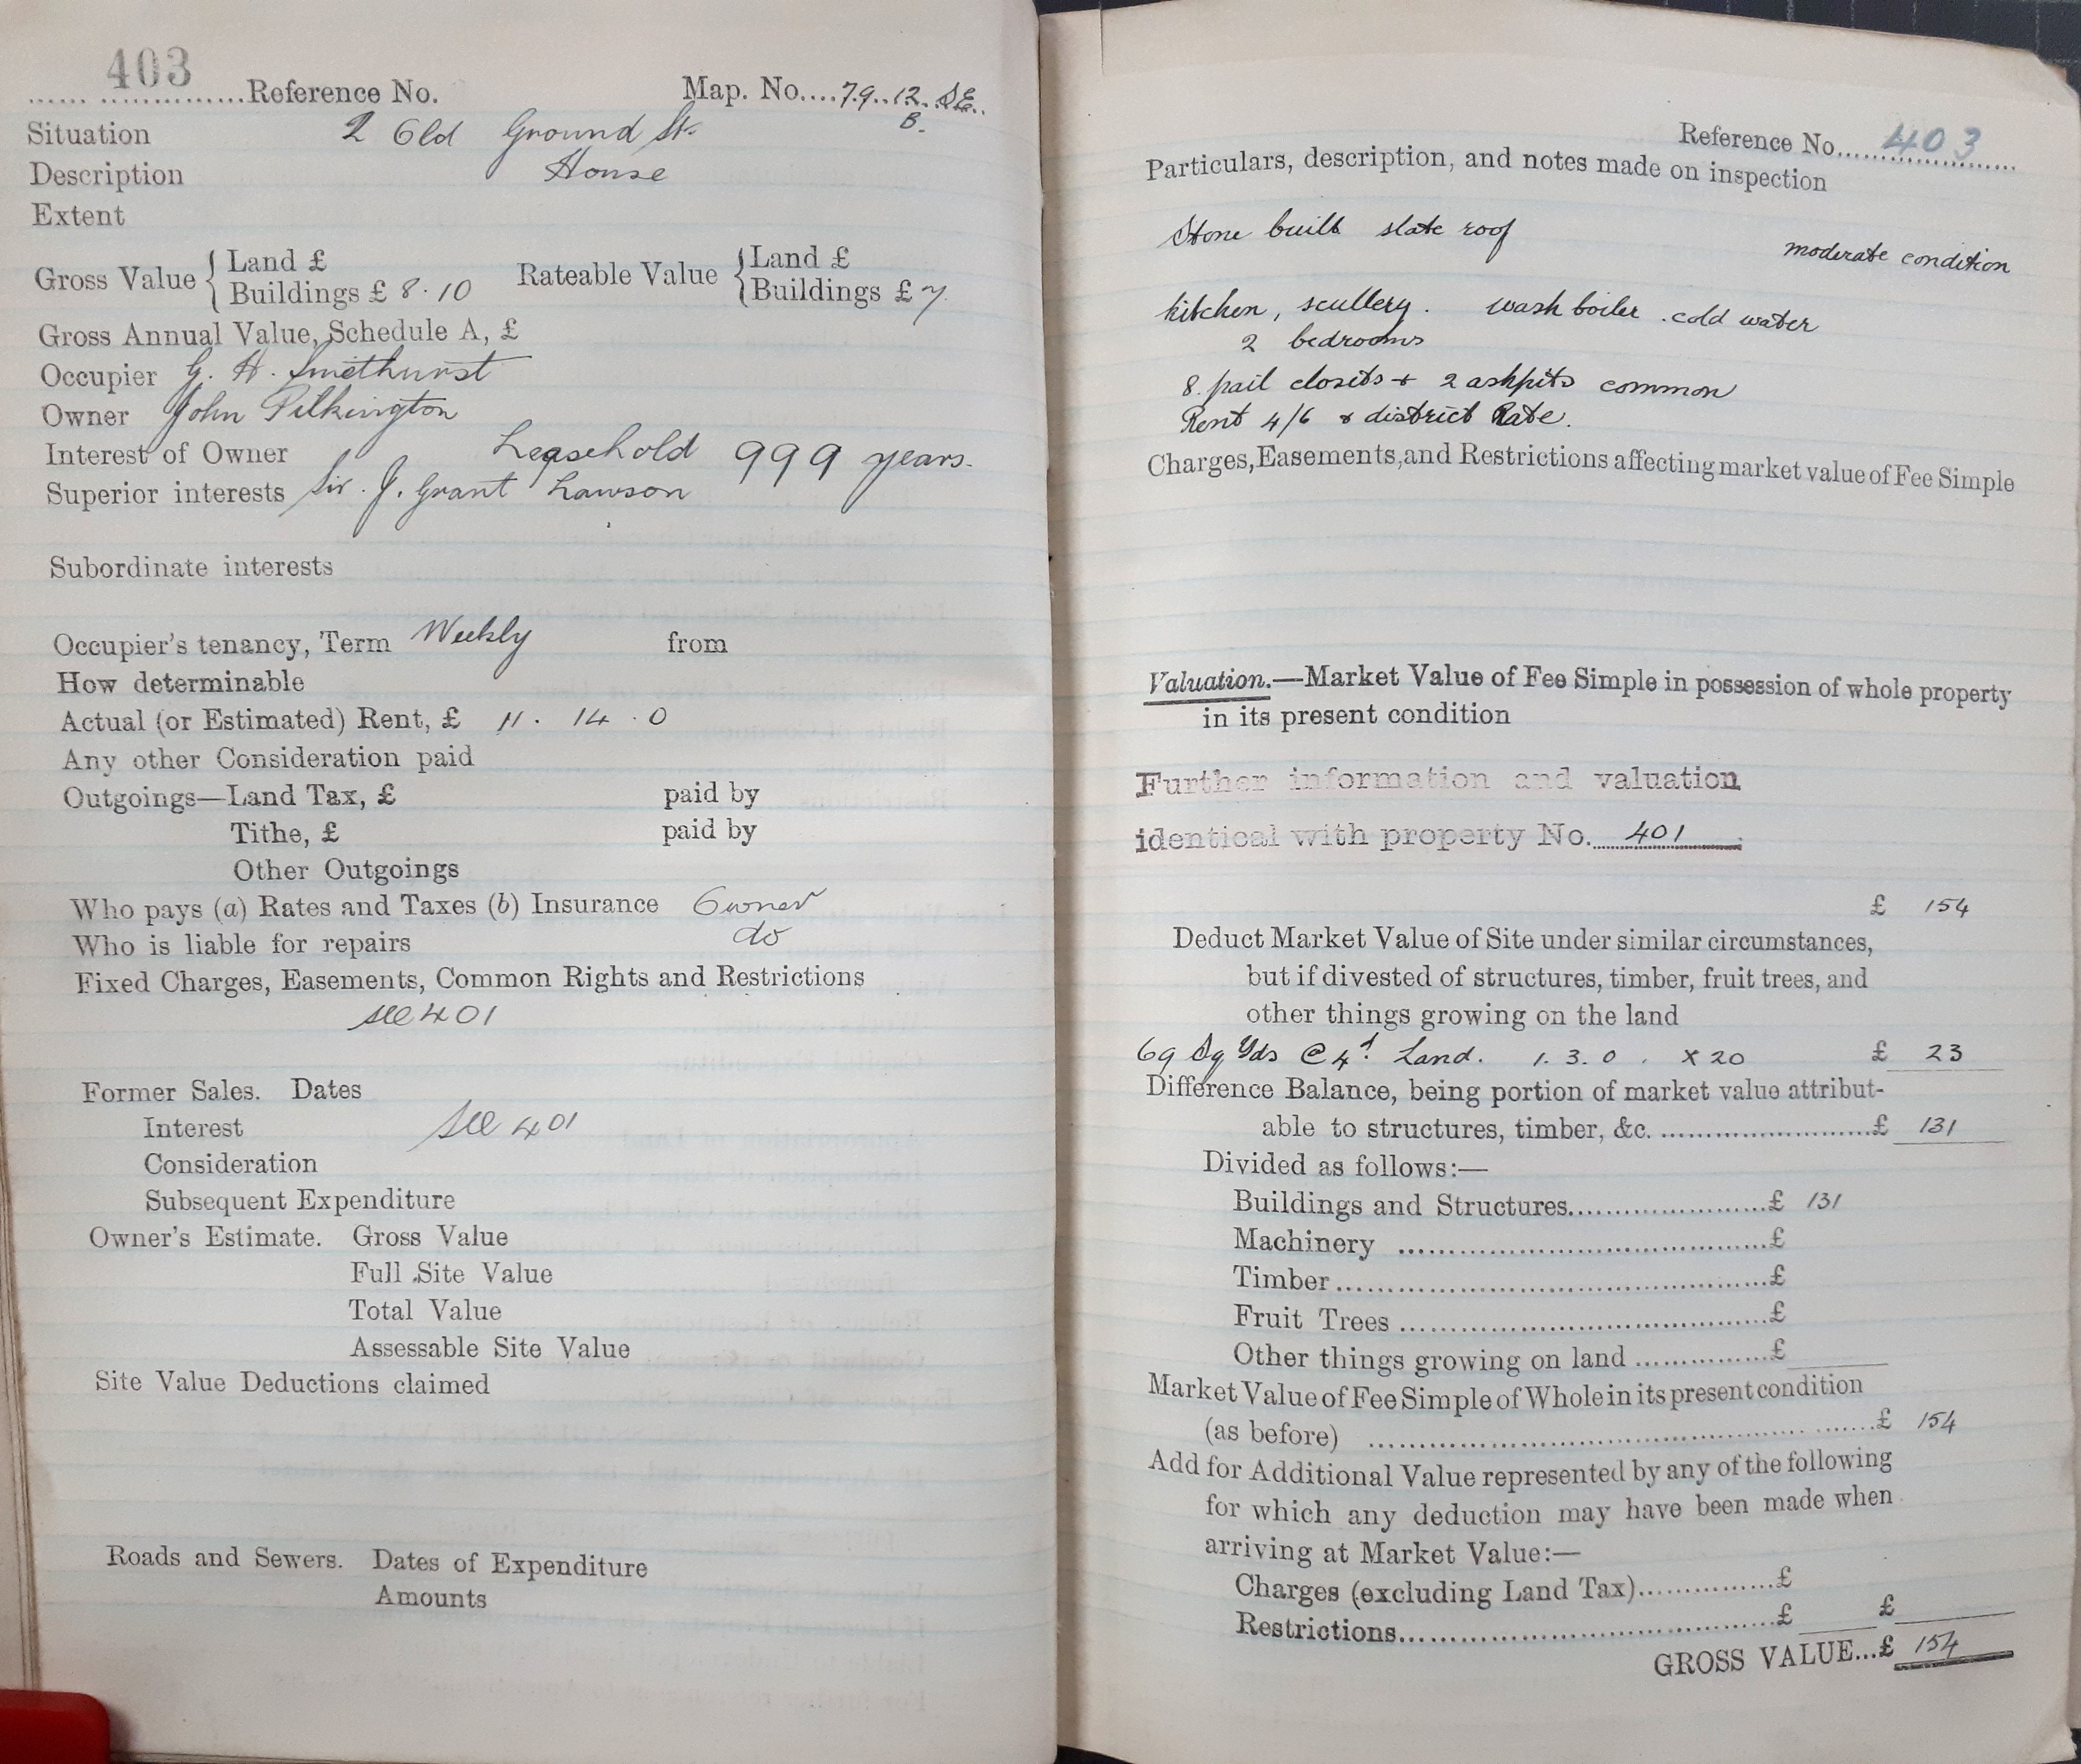 403
Reference No. Map. No. 79. 12. S.E.
B.
Situation 2 Old Ground St.
Description House
Extent
Gross Value { Land £
Buildings £ 8.10 Rateable Value { Land £
Buildings £ 7
Gross Annual Value, Schedule A, £
Occupier G. H. Smethurst
Owner John Pilkington
Interest of Owner Leasehold 999 years.
Superior interests Sir. J. Grant Lawson
Subordinate interests
Occupier's tenancy, Term Weekly from
How determinable
Actual (or Estimated) Rent, £ 11. 14. 0
Any other Consideration paid
Outgoings—Land Tax, £ paid by
Tithe, £ paid by
Other Outgoings
Who pays (a) Rates and Taxes (b) Insurance Owner
Who is liable for repairs do
Fixed Charges, Easements, Common Rights and Restrictions
see 401
Former Sales. Dates
Interest see 401
Consideration
Subsequent Expenditure
Owner's Estimate. Gross Value
Full Site Value
Total Value
Assessable Site Value
Site Value Deductions claimed
Roads and Sewers. Dates of Expenditure
Amounts
Reference No. 403
Particulars, description, and notes made on inspection
Stone built slate roof
moderate condition
kitchen, scullery. wash boiler. cold water
2 bedrooms
8 pail closets + 2 ashpits common
Rent 4/6 & district Rate.
Charges, Easements, and Restrictions affecting market value of Fee Simple
Valuation.—Market Value of Fee Simple in possession of whole property
in its present condition
Further information and valuation
identical with property No. 401.
£ 154
Deduct Market Value of Site under similar circumstances,
but if divested of structures, timber, fruit trees, and
other things growing on the land
69 Sq Yds @ 4d Land. 1. 3. 0. X 20 £ 23
Difference Balance, being portion of market value attribut-
able to structures, timber, &c. £ 131
Divided as follows:—
Buildings and Structures £ 131
Machinery £
Timber £
Fruit Trees £
Other things growing on land £
Market Value of Fee Simple of Whole in its present condition
(as before) £ 154
Add for Additional Value represented by any of the following
for which any deduction may have been made when
arriving at Market Value:—
Charges (excluding Land Tax) £
Restrictions £ £
GROSS VALUE...£ 154